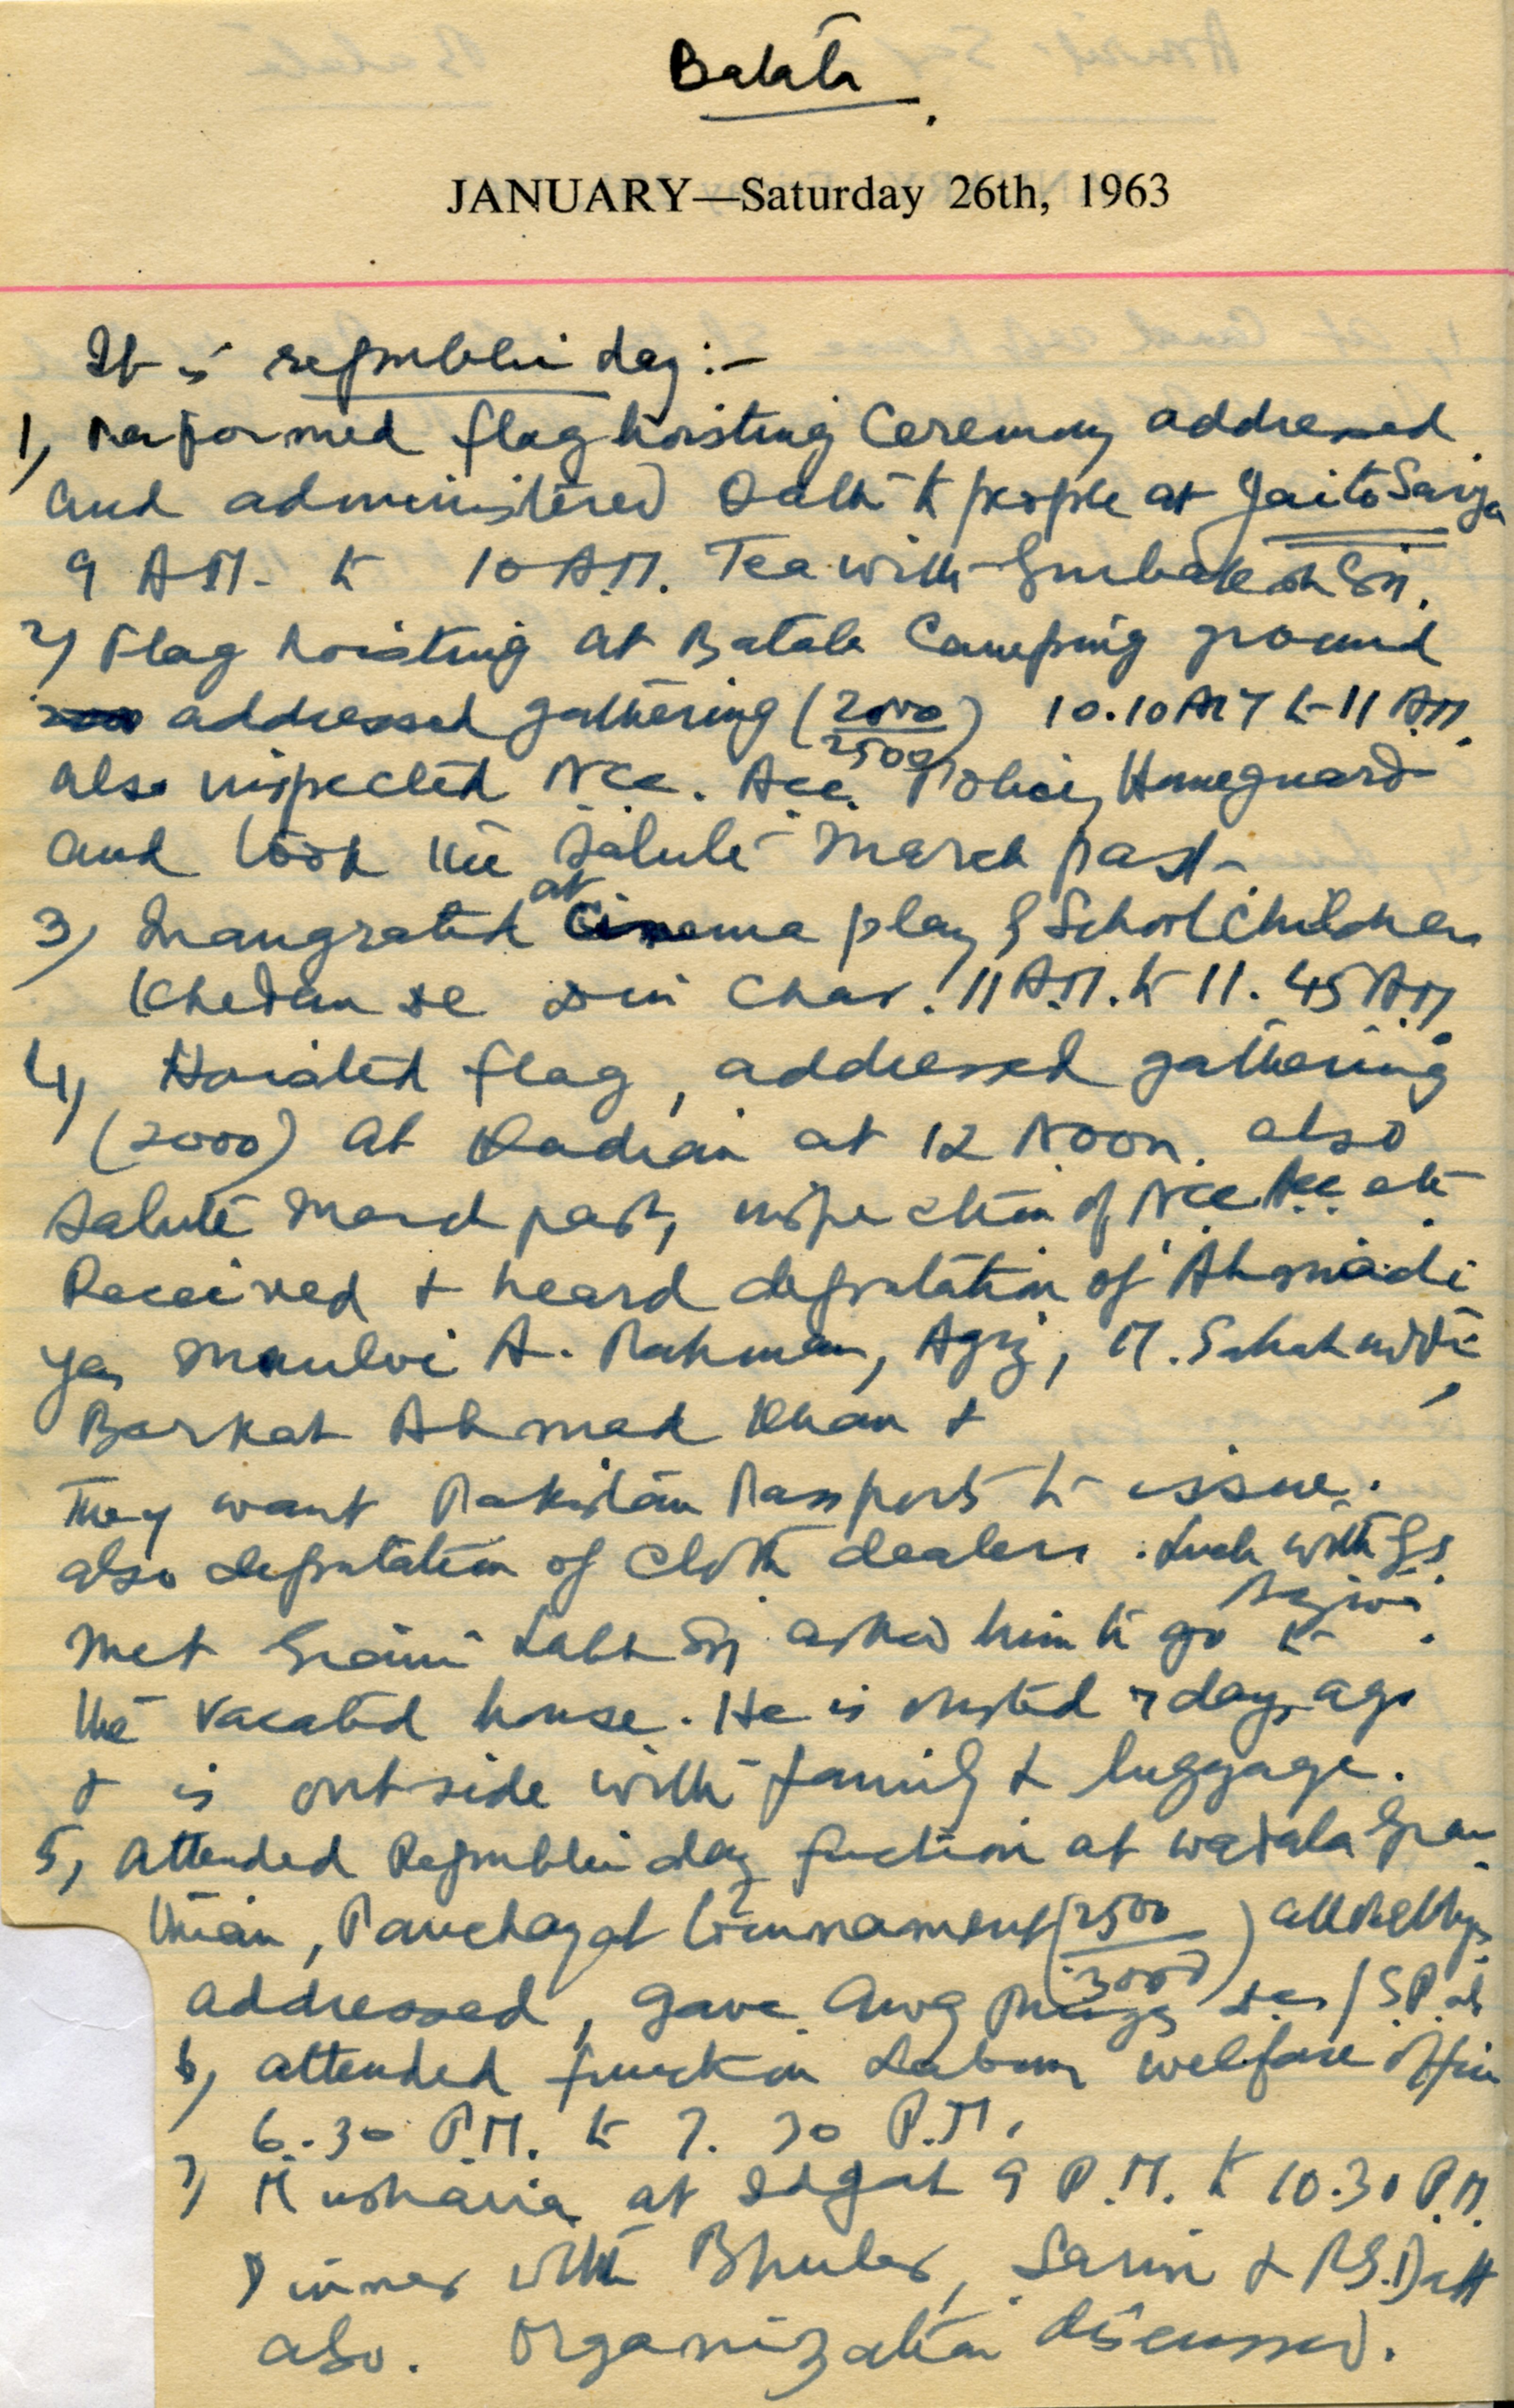 Batala
JANUARY—Saturday 26th, 1963
It is republic day:-
1) Performed flag hoisting Ceremony addressed
and administered Oath to people at Jaito Sarja
9 A.M. to 10 A.M. Tea with Gurbaksh Sn.
2) Flag hoisting at Batala Camping ground
addressed gathering (2000/2500) 10.10 AM to 11 A.M.
also inspected Ncc. Acc. Police, Homeguard
and took the Salute March past
3) Inaugrated at Cinema play of School Children
Khedan de din Char! 11 A.M. to 11.45 AM
4) Hoisted flag, addressed gathering
(2000) at Kadian at 12 Noon. also
Salute March past, inspection of Ncc. Acc etc.
Received & heard deputation of Ahmadi
ya, Maulvi A. Rahman, M.
Barkat Ahmad Khan &
They want Pakistan Passports to issue.
also deputation of Cloth dealers. Lunch with
Met Giani Labh Sn asked him to go to
the vacated house. He is ousted 7 days ago
& is outside with family & luggage.
5) Attended Republic day function at Wadala Gran
thian, Panchayat tournament (2500/3000)
addressed, gave away prizes
6) attended function Labour welfare Office
6.30 P.M. to 7.30 P.M.
7) Mushaira at Idgah 9 P.M. to 10.30 P.M.
Dinner with Bhuler, Sarin &
also. Organization discussed.